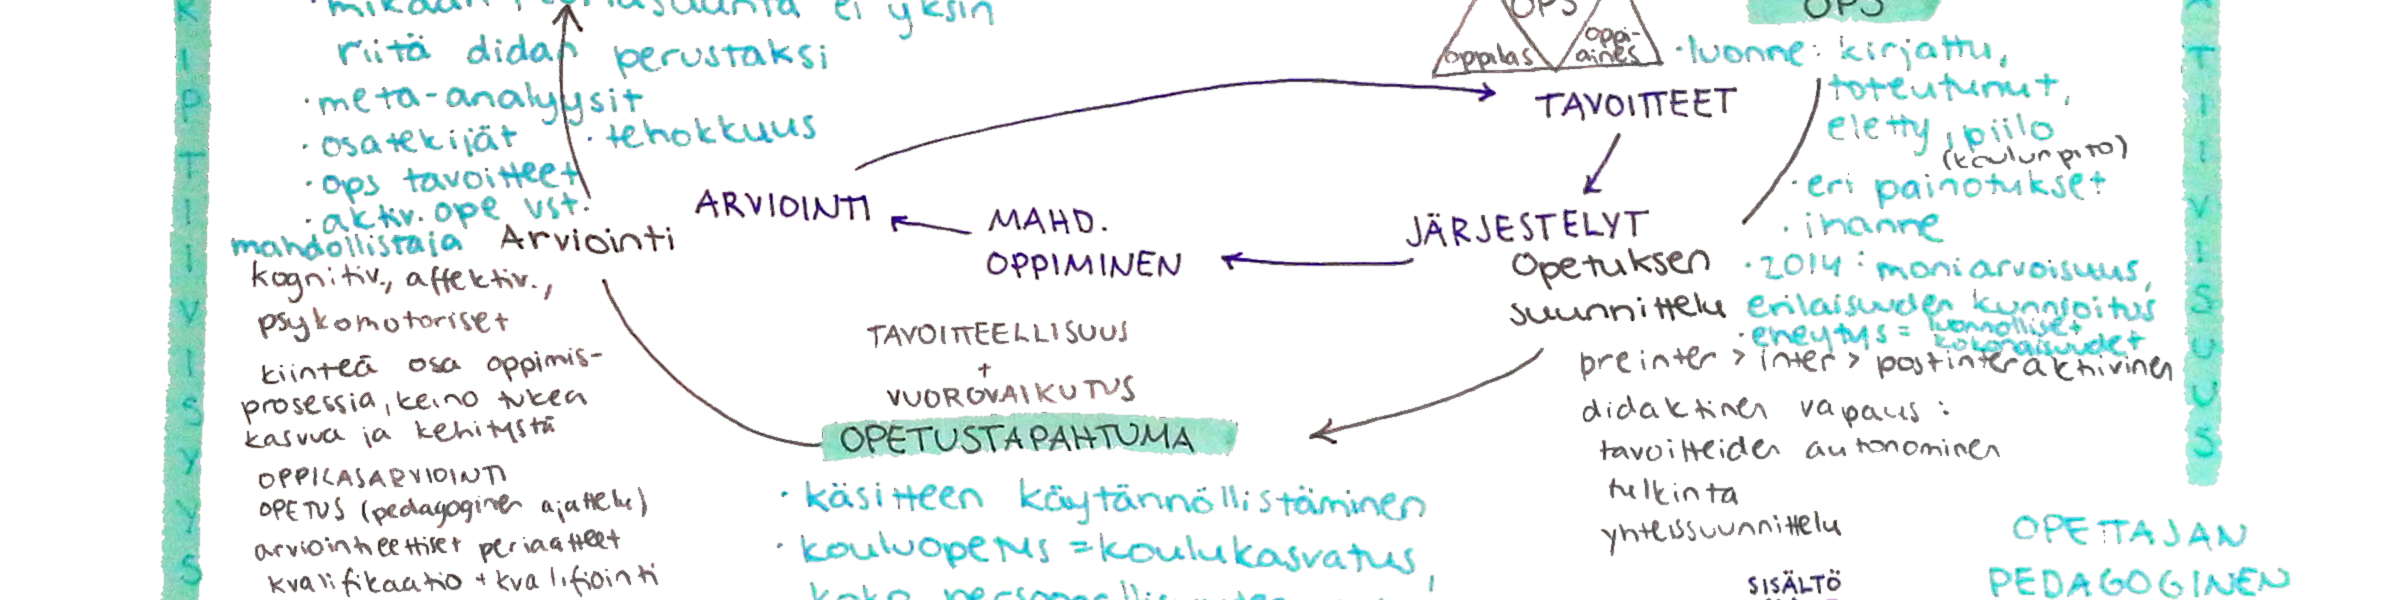 ei yksin
riitä didan perustaksi
·meta-analyysit
·osatekijät ·tehokkuus
·ops tavoitteet
·aktiv. ope vst.
mahdollistaja
Arviointi
kognitiv., affektiv.,
psykomotoriset
kiinteä osa oppimis-
prosessia, keino tukea
kasvua ja kehitystä
OPPILASARVIOINTI
OPETUS (pedagoginen ajattelu)
arviointieettiset periaatteet
kvalifikaatio + kvalifiointi
KIPTIIVISYYS
ARVIOINTI
MAHD.
OPPIMINEN
TAVOITTEELLISUUS
+
VUOROVAIKUTUS
OPETUSTAPAHTUMA
·käsitteen käytännöllistäminen
·kouluopetus = koulukasvatus,
koko
OPS
oppilas
oppi-
aines
TAVOITTEET
JÄRJESTELYT
Opetuksen
suunnittelu
OPS
·luonne: kirjattu,
toteutunut,
eletty, piilo
(koulunpito)
·eri painotukset
·ihanne
·2014: moniarvoisuus,
erilaisuuden kunnioitus
·eheytys = luonnolliset
kokonaisuudet
preinter > inter > postinteraktiivinen
didaktinen vapaus:
tavoitteiden autonominen
tulkinta
yhteissuunnittelu
SISÄLTÖ
OPETTAJAN
PEDAGOGINEN
TIIVISUUS